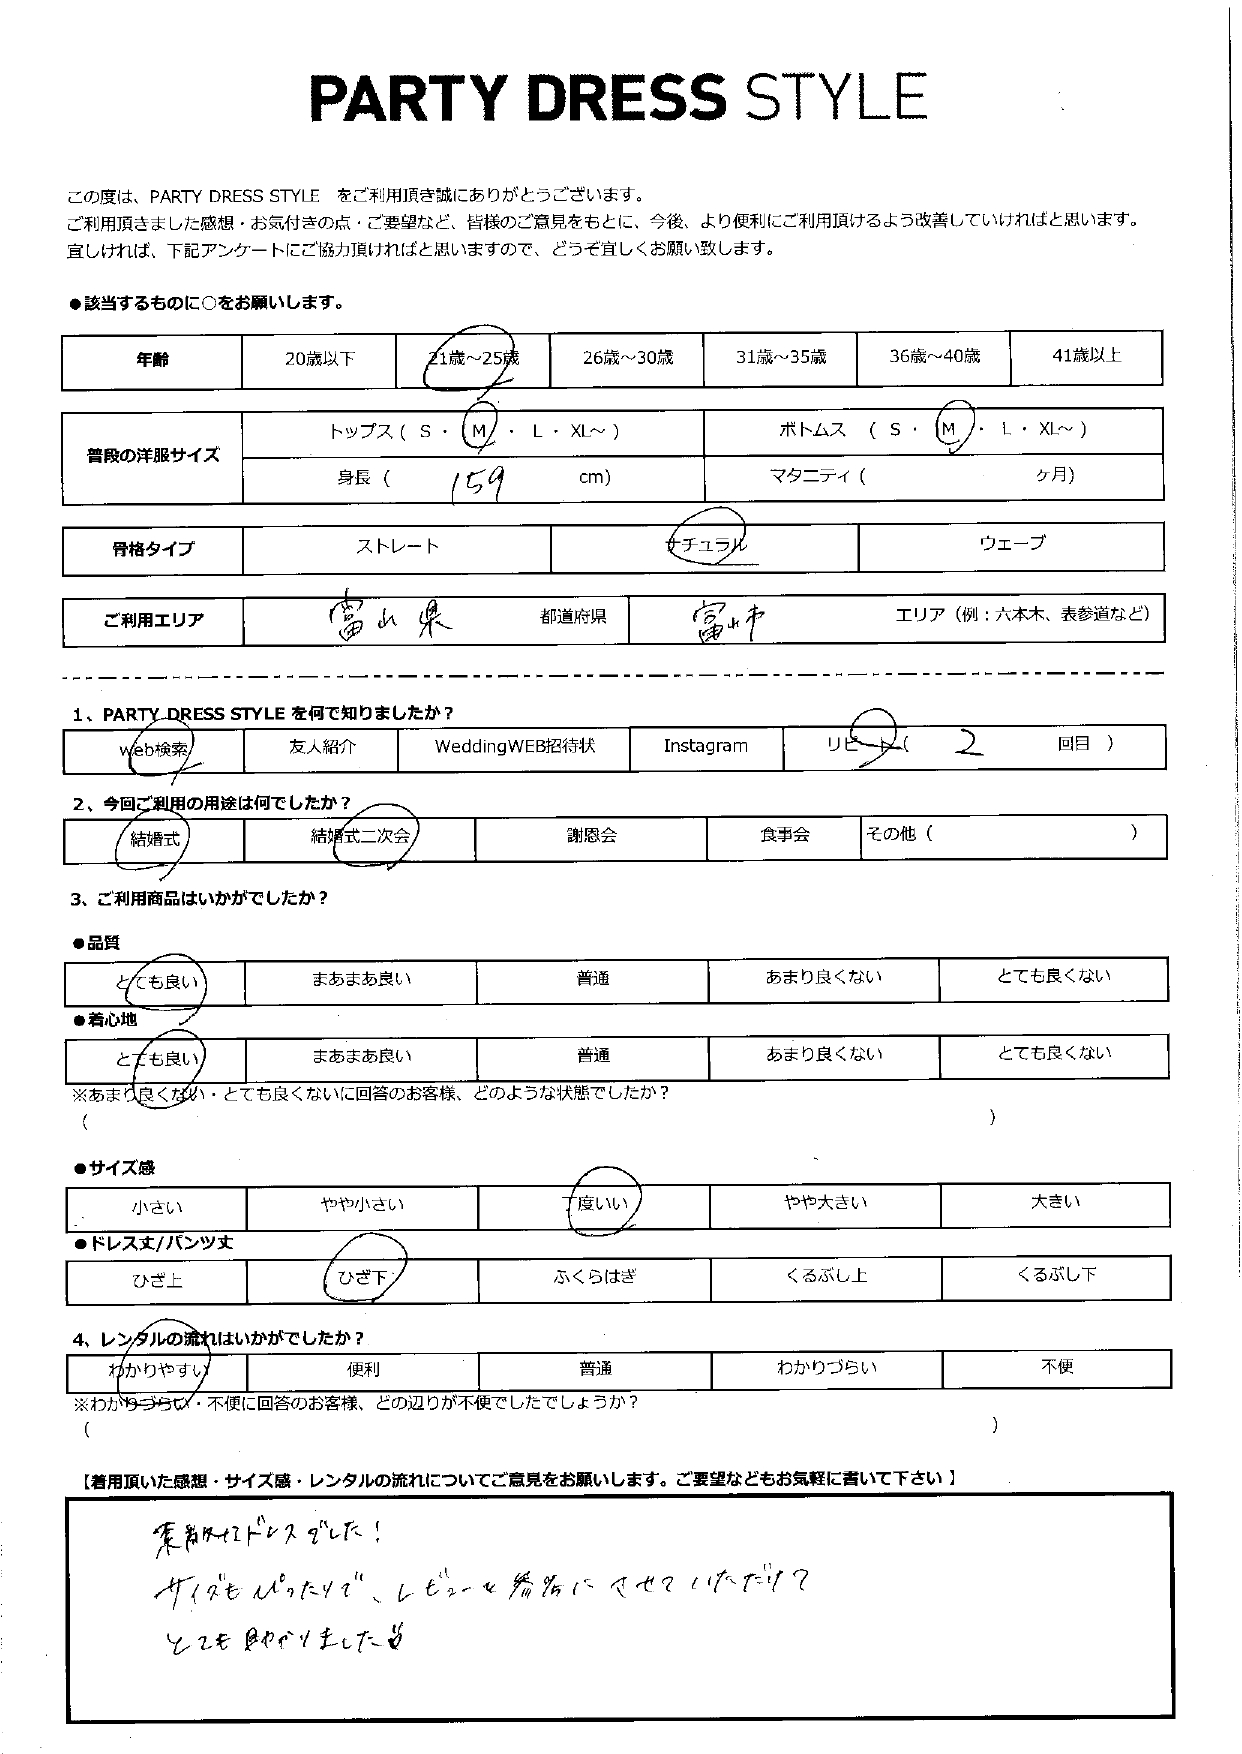 PARTY DRESS STYLE
この度は、PARTY DRESS STYLE をご利用頂き誠にありがとうございます。
ご利用頂きました感想・お気付きの点・ご要望など、皆様のご意見をもとに、今後、より便利にご利用頂けるよう改善していければと思います。
宜しければ、下記アンケートにご協力頂ければと思いますので、どうぞ宜しくお願い致します。
●該当するものに○をお願いします。
年齢 20歳以下 21歳～25歳 26歳～30歳 31歳～35歳 36歳～40歳 41歳以上
普段の洋服サイズ トップス ( S ・ M ・ L ・ XL～ ) ボトムス ( S ・ M ・ L ・ XL～ )
身長 ( 159 cm) マタニティ ( ヶ月)
骨格タイプ ストレート ナチュラル ウェーブ
ご利用エリア 富山県 都道府県 富山市 エリア（例：六本木、表参道など）
1、PARTY DRESS STYLE を何で知りましたか？
web検索 友人紹介 WeddingWEB招待状 Instagram リピート ( 2 回目 )
2、今回ご利用の用途は何でしたか？
結婚式 結婚式二次会 謝恩会 食事会 その他 ( )
3、ご利用商品はいかがでしたか？
●品質
とても良い まあまあ良い 普通 あまり良くない とても良くない
●着心地
とても良い まあまあ良い 普通 あまり良くない とても良くない
※あまり良くない・とても良くないに回答のお客様、どのような状態でしたか？
( )
●サイズ感
小さい やや小さい 丁度いい やや大きい 大きい
●ドレス丈/パンツ丈
ひざ上 ひざ下 ふくらはぎ くるぶし上 くるぶし下
4、レンタルの流れはいかがでしたか？
わかりやすい 便利 普通 わかりづらい 不便
※わかりづらい・不便に回答のお客様、どの辺りが不便でしたでしょうか？
( )
【着用頂いた感想・サイズ感・レンタルの流れについてご意見をお願いします。ご要望などもお気軽に書いて下さい】
素敵なドレスでした！
サイズもぴったりで、レビューも参考にさせていただけて
とても助かりました